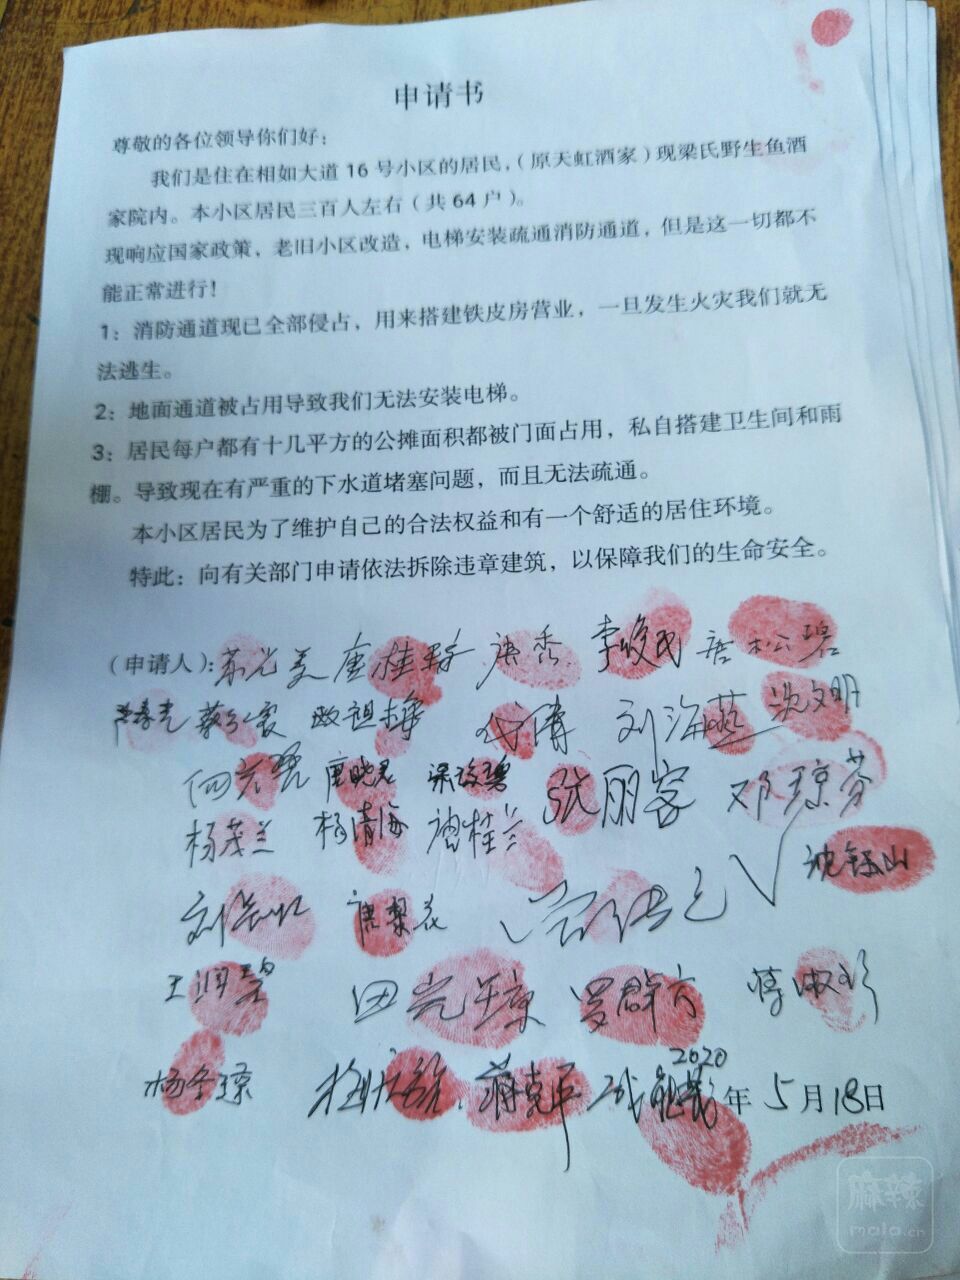 申请书
尊敬的各位领导你们好：
我们是住在相如大道16号小区的居民，（原天虹酒家）现梁氏野生鱼酒
家院内。本小区居民三百人左右（共64户）。
现响应国家政策，老旧小区改造，电梯安装疏通消防通道，但是这一切都不
能正常进行！
1：消防通道现已全部侵占，用来搭建铁皮房营业，一旦发生火灾我们就无
法逃生。
2：地面通道被占用导致我们无法安装电梯。
3：居民每户都有十几平方的公摊面积都被门面占用，私自搭建卫生间和雨
棚。导致现在有严重的下水道堵塞问题，而且无法疏通。
本小区居民为了维护自己的合法权益和有一个舒适的居住环境。
特此：向有关部门申请依法拆除违章建筑，以保障我们的生命安全。
（申请人）：唐秀 李俊民 唐松碧
刘海燕 沈文明
唐晓君 张丽容 邓琼芬
杨茂兰 杨清海 唐桂兰
唐梨花
田光琼 罗群六 蒋淑珍
杨冬琼 蒋克平 2020年5月18日
麻辣
mala.cn